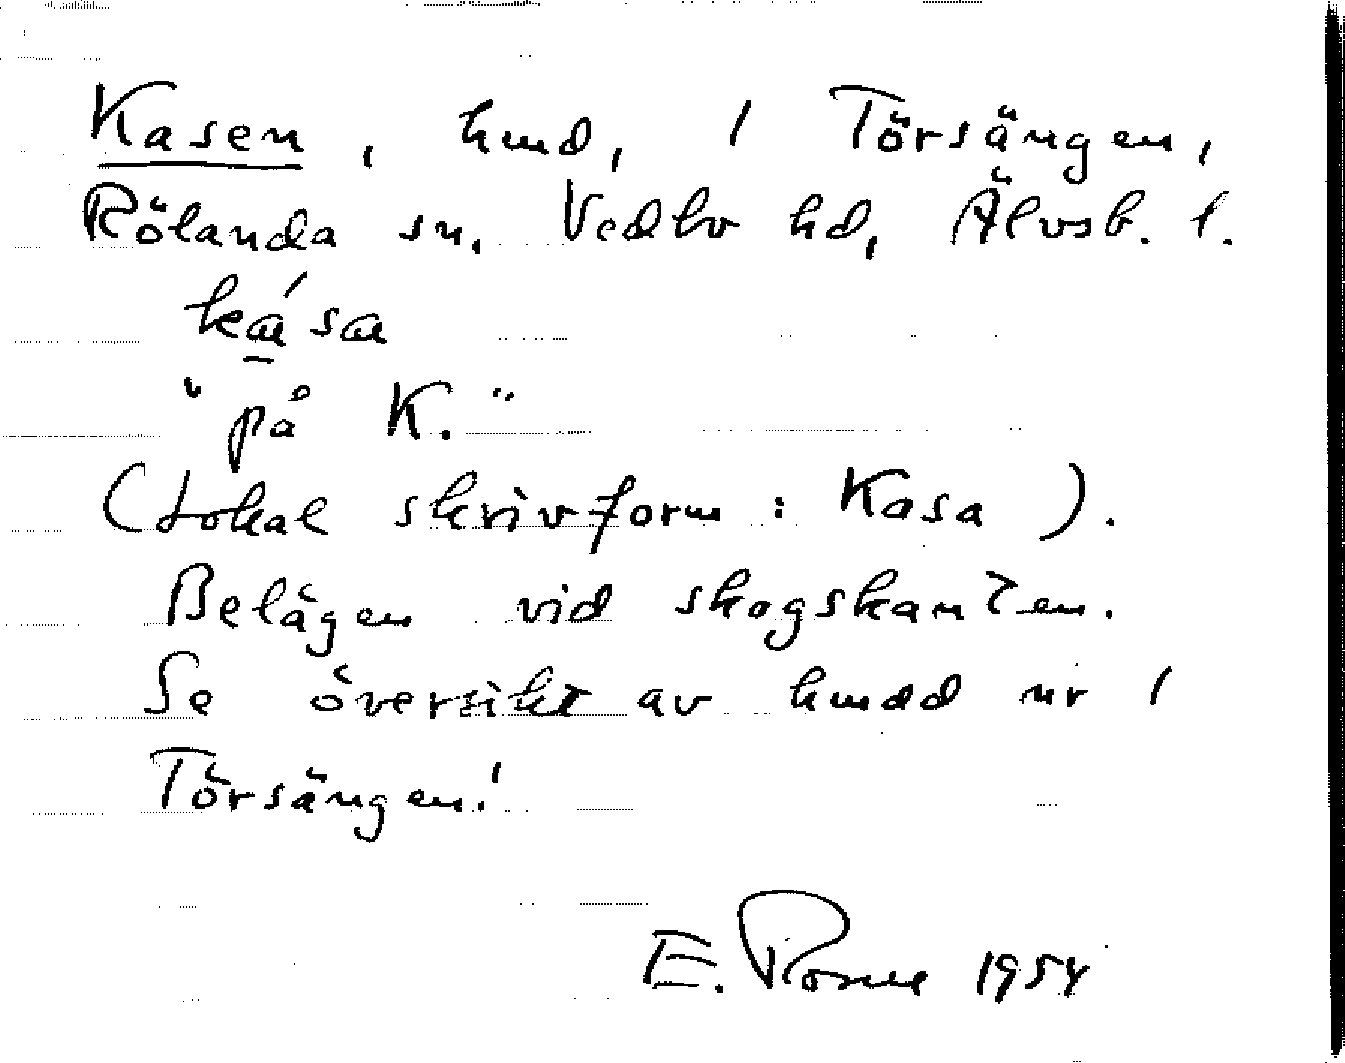 Kasen, hmd, 1 Törsängen,
Rölanda sn. Vedbo hd, Älvsb. l.
ká̱sa
"på K."
(Lokal skrivform: Kasa).
Belägen vid skogskanten.
Se översikt av hmdd ur 1
Törsängen!
E. 1954